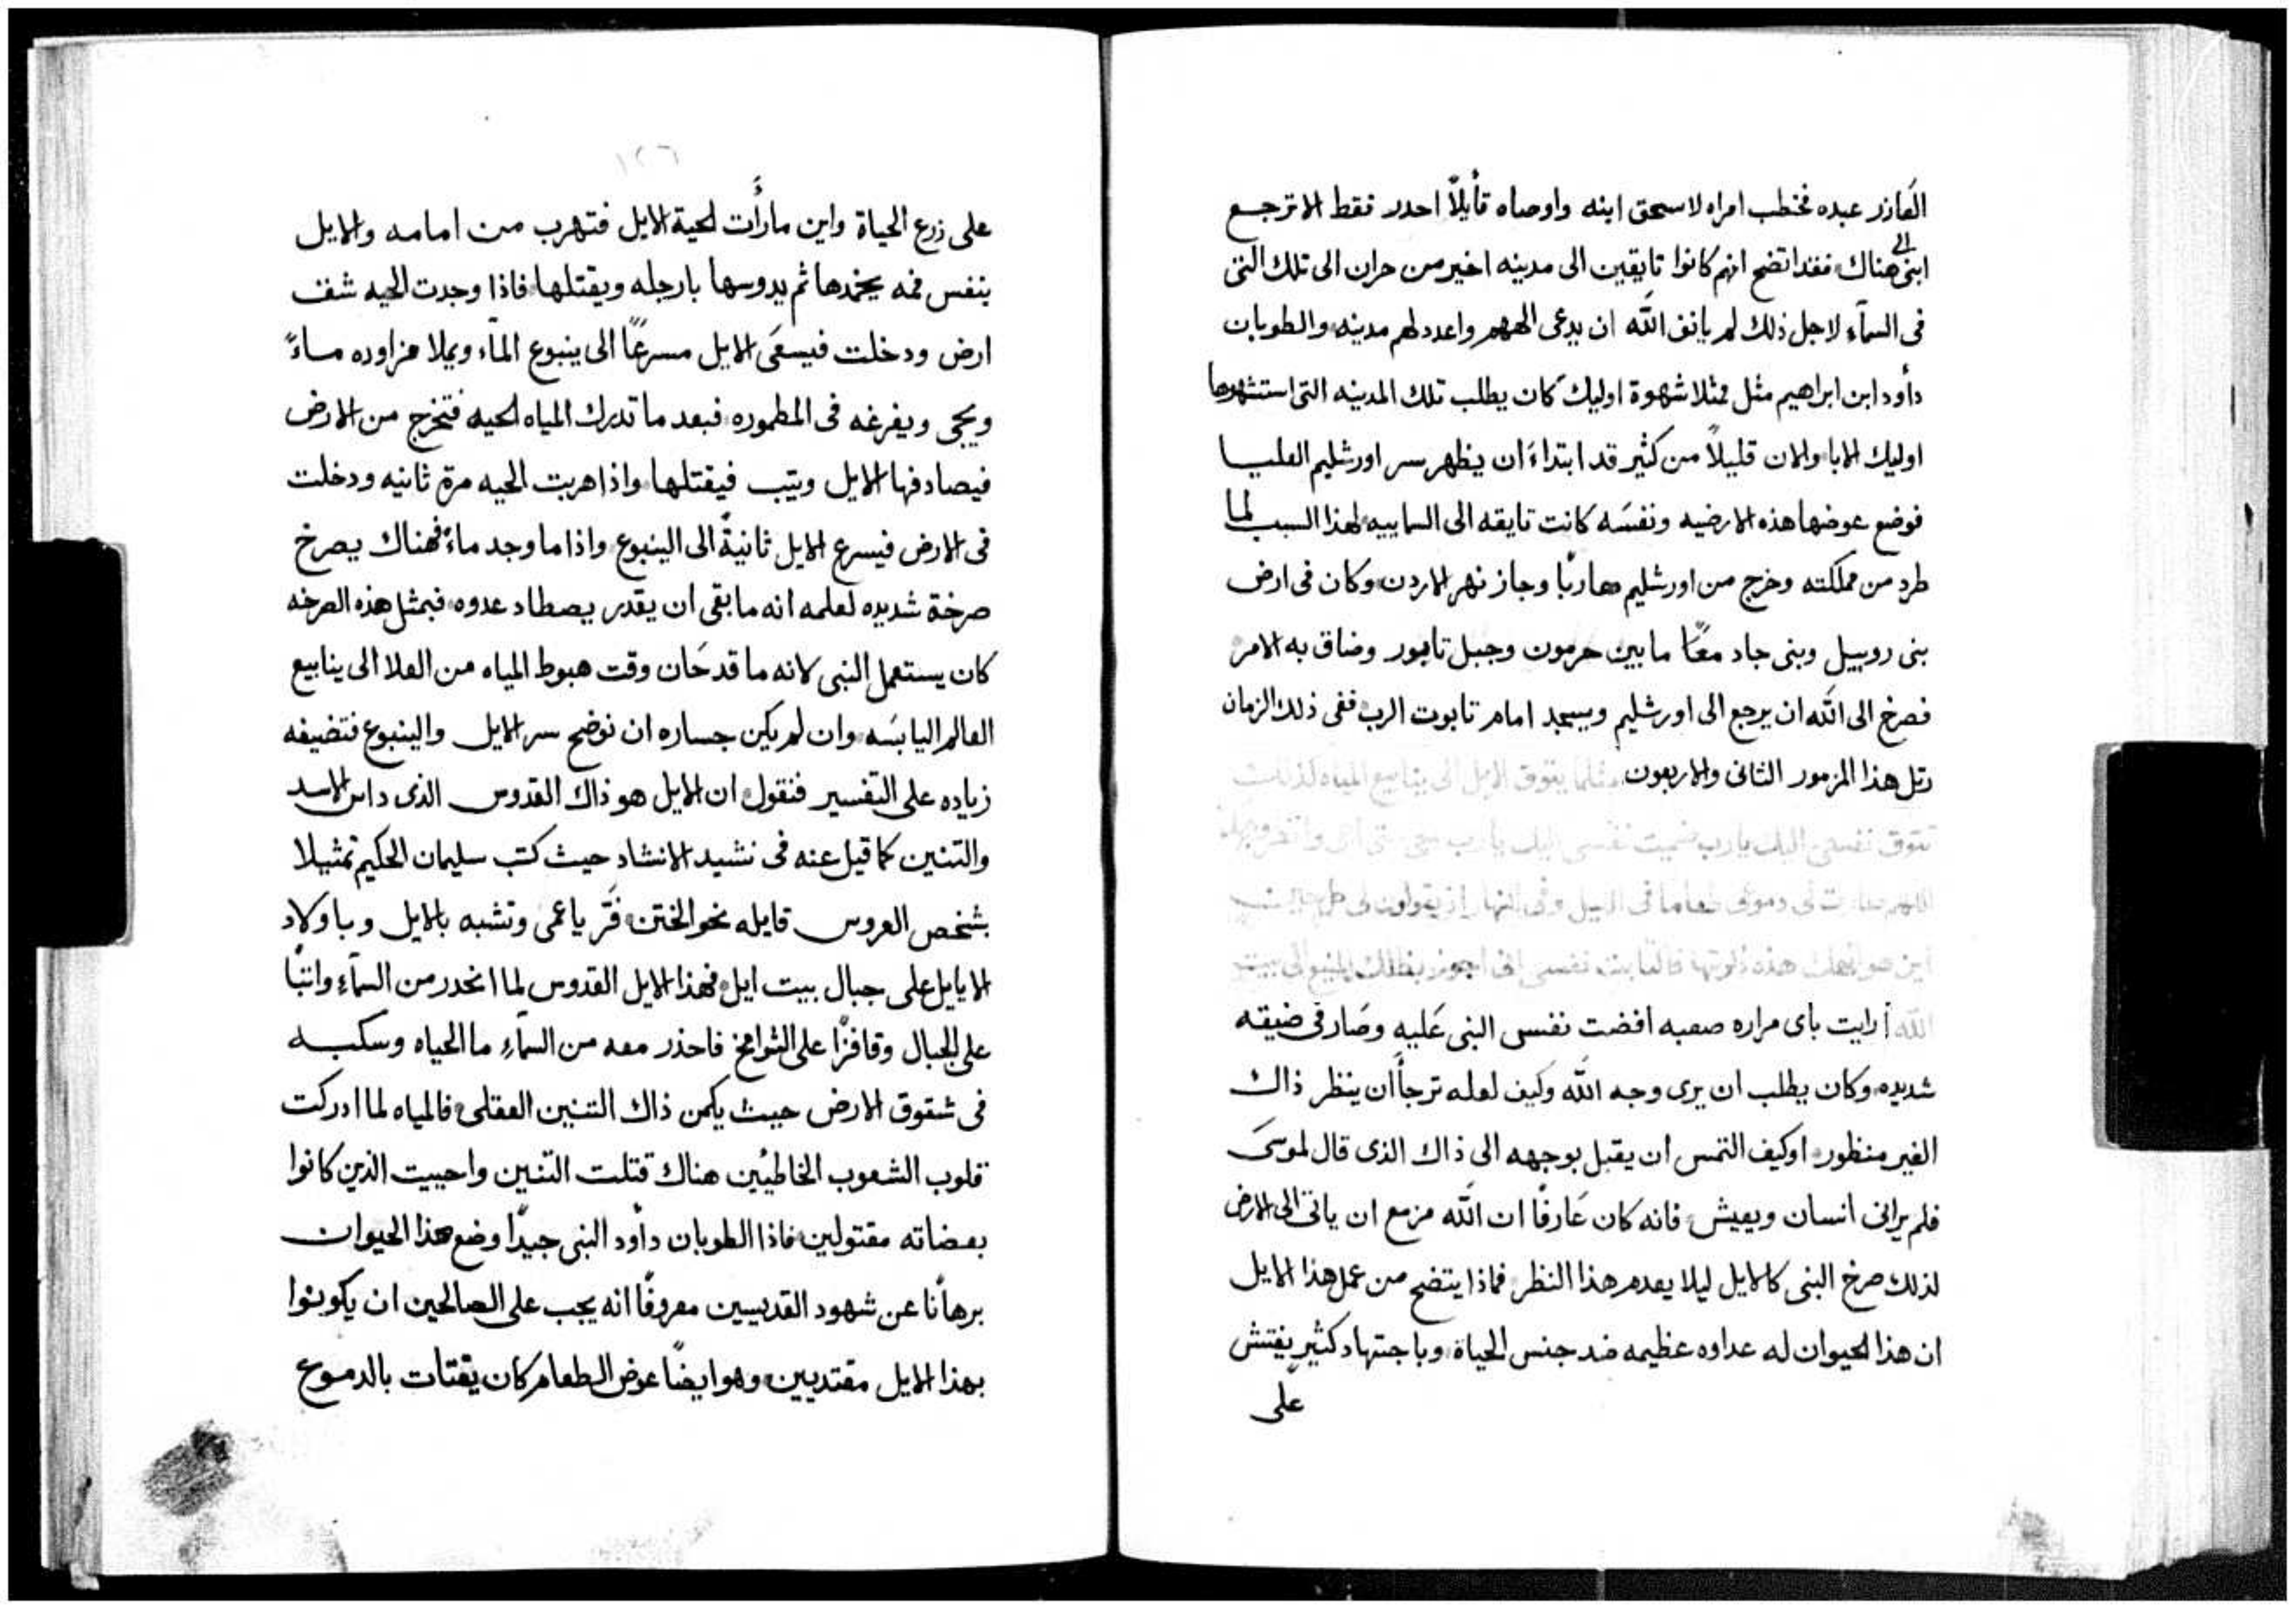 العازر عبده فخطب امراه لاسحق ابنه واوصاه قأيلاً احدر فقط الا ترجع
ابنى الى هناك فقد اتضح انهم كانوا تايقين الى مدينه اخير من حران الى تلك التى
فى السمآء لاجل ذلك لم يانف الله ان يدعى الههم واعدد لهم مدينه والطوبان
دأود ابن ابراهيم مثل ممثلا شهوة اوليك كان يطلب تلك المدينه التى استشهوها
اوليك الابا والان قليلاً من كثير قد ابتداءَ ان يظهر سر اورشليم العليا
فوضع عوضها هذه الارضيه ونفسَه كانت تايقه الى السماييه لهذا السبب لما
طرد من مملكته وخرج من اورشليم هاربًا وجاز نهر الاردن وكان فى ارض
بنى روبيل وبنى جاد معًا ما بين حرمون وجبل تابور وضاق به الامر
فصرخ الى الله ان يرجع الى اورشليم ويسجد امام تابوت الرب ففى ذلك الزمان
رتل هذا المزمور الثانى والاربعون مثلما يتوق الايل الى ينابيع المياه لذلك
تتوق نفسى اليك يارب
دموعى طعاما فى الليل وفى النهار اذ يقولون لى كل
اين هو الهك هذه
الله أرايت باى مراره صعبه افضت نفس النبى عَليه وصَار فى ضيقه
شديده وكان يطلب ان يرى وجه الله وكيف لعله ترجأ ان ينظر ذاك
الغير منظور اوكيف التمس ان يقبل بوجهه الى ذاك الذى قال لموسَى
فلم يرانى انسان ويعيش فانه كان عَارفًا ان الله مزمع ان ياتى الى الارض
لذلك صرخ النبى كالايل ليلا يعدم هذا النظر فماذا يتضح من عمل هذا الايل
ان هذا الحيوان له عداوه عظيمه ضد جنس الحياة وباجتهاد كثير يفتش
على
١٢٦
على زرع الحياة واين مارأَت الحية الايل فتهرب من امامه والايل
بنفس فمه يخمدها ثم يدوسها بارجله ويقتلها فاذا وجدت الحيه شف
ارض ودخلت فيسعَى الايل مسرعًا الى ينبوع المآء ويملا مزاوده ماءً
ويجى ويفرغه فى المطموره فبعد ما تدرك المياه الحيه فتخرج من الارض
فيصادفها الايل ويتب فيقتلها واذا هربت الحيه مرة ثانيه ودخلت
فى الارض فيسرع الايل ثانيةً الى الينبوع واذا ما وجد ماءً فهناك يصرخ
صرخة شديده لعلمه انه ما بقى ان يقدر يصطاد عدوه فبمثل هذه الصرخه
كان يستعمل النبى لانه ما قد حَان وقت هبوط المياه من العلا الى ينابيع
العالم اليابسَه وان لم يكن جساره ان نوضح سر الايل والينبوع فتضيفه
زياده على التفسير فنقول ان الايل هو ذاك القدوس الذى داس الاسد
والتنين كما قيل عنه فى نشيد الانشاد حيث كتب سليمان الحكيم تمثيلا
بشخص العروس قايله نحو الختن فّر ياعمى وتشبه بالايل وباولاد
الايايل على جبال بيت ايل فهذا الايل القدوس لما انحدر من السمآء واتبًا
على الجبال وقافزًا على الشوامخ فاحذر معه من السمآءِ ما الحياه وسكبه
فى شقوق الارض حيث يكمن ذاك التنين العقلى فالمياه لما ادركت
قلوب الشعوب الخاطيين هناك قتلت التنين واحييت الذين كانوا
بعضاته مقتولين فاذا الطوبان دأود النبى جيدًا وضع هذا الحيوان
برهانًا عن شهود القديسين معروفًا انه يجب على الصالحين ان يكونوا
بهذا الايل مقتديين وهو ايضًا عوض الطعام كان يقتات بالدموع